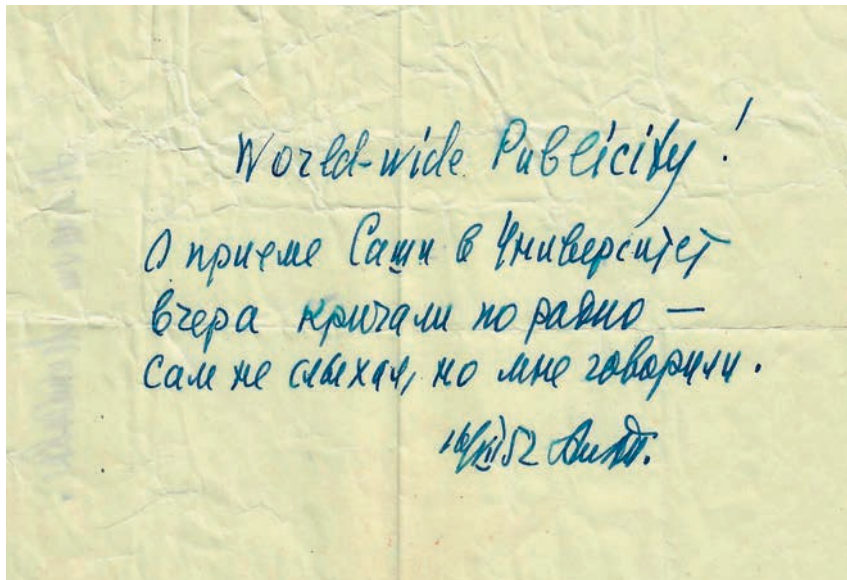 World-wide Publicity!
О приеме Саши в Университет
вчера кричали по радио —
сам не слыхал, но мне говорили.
52